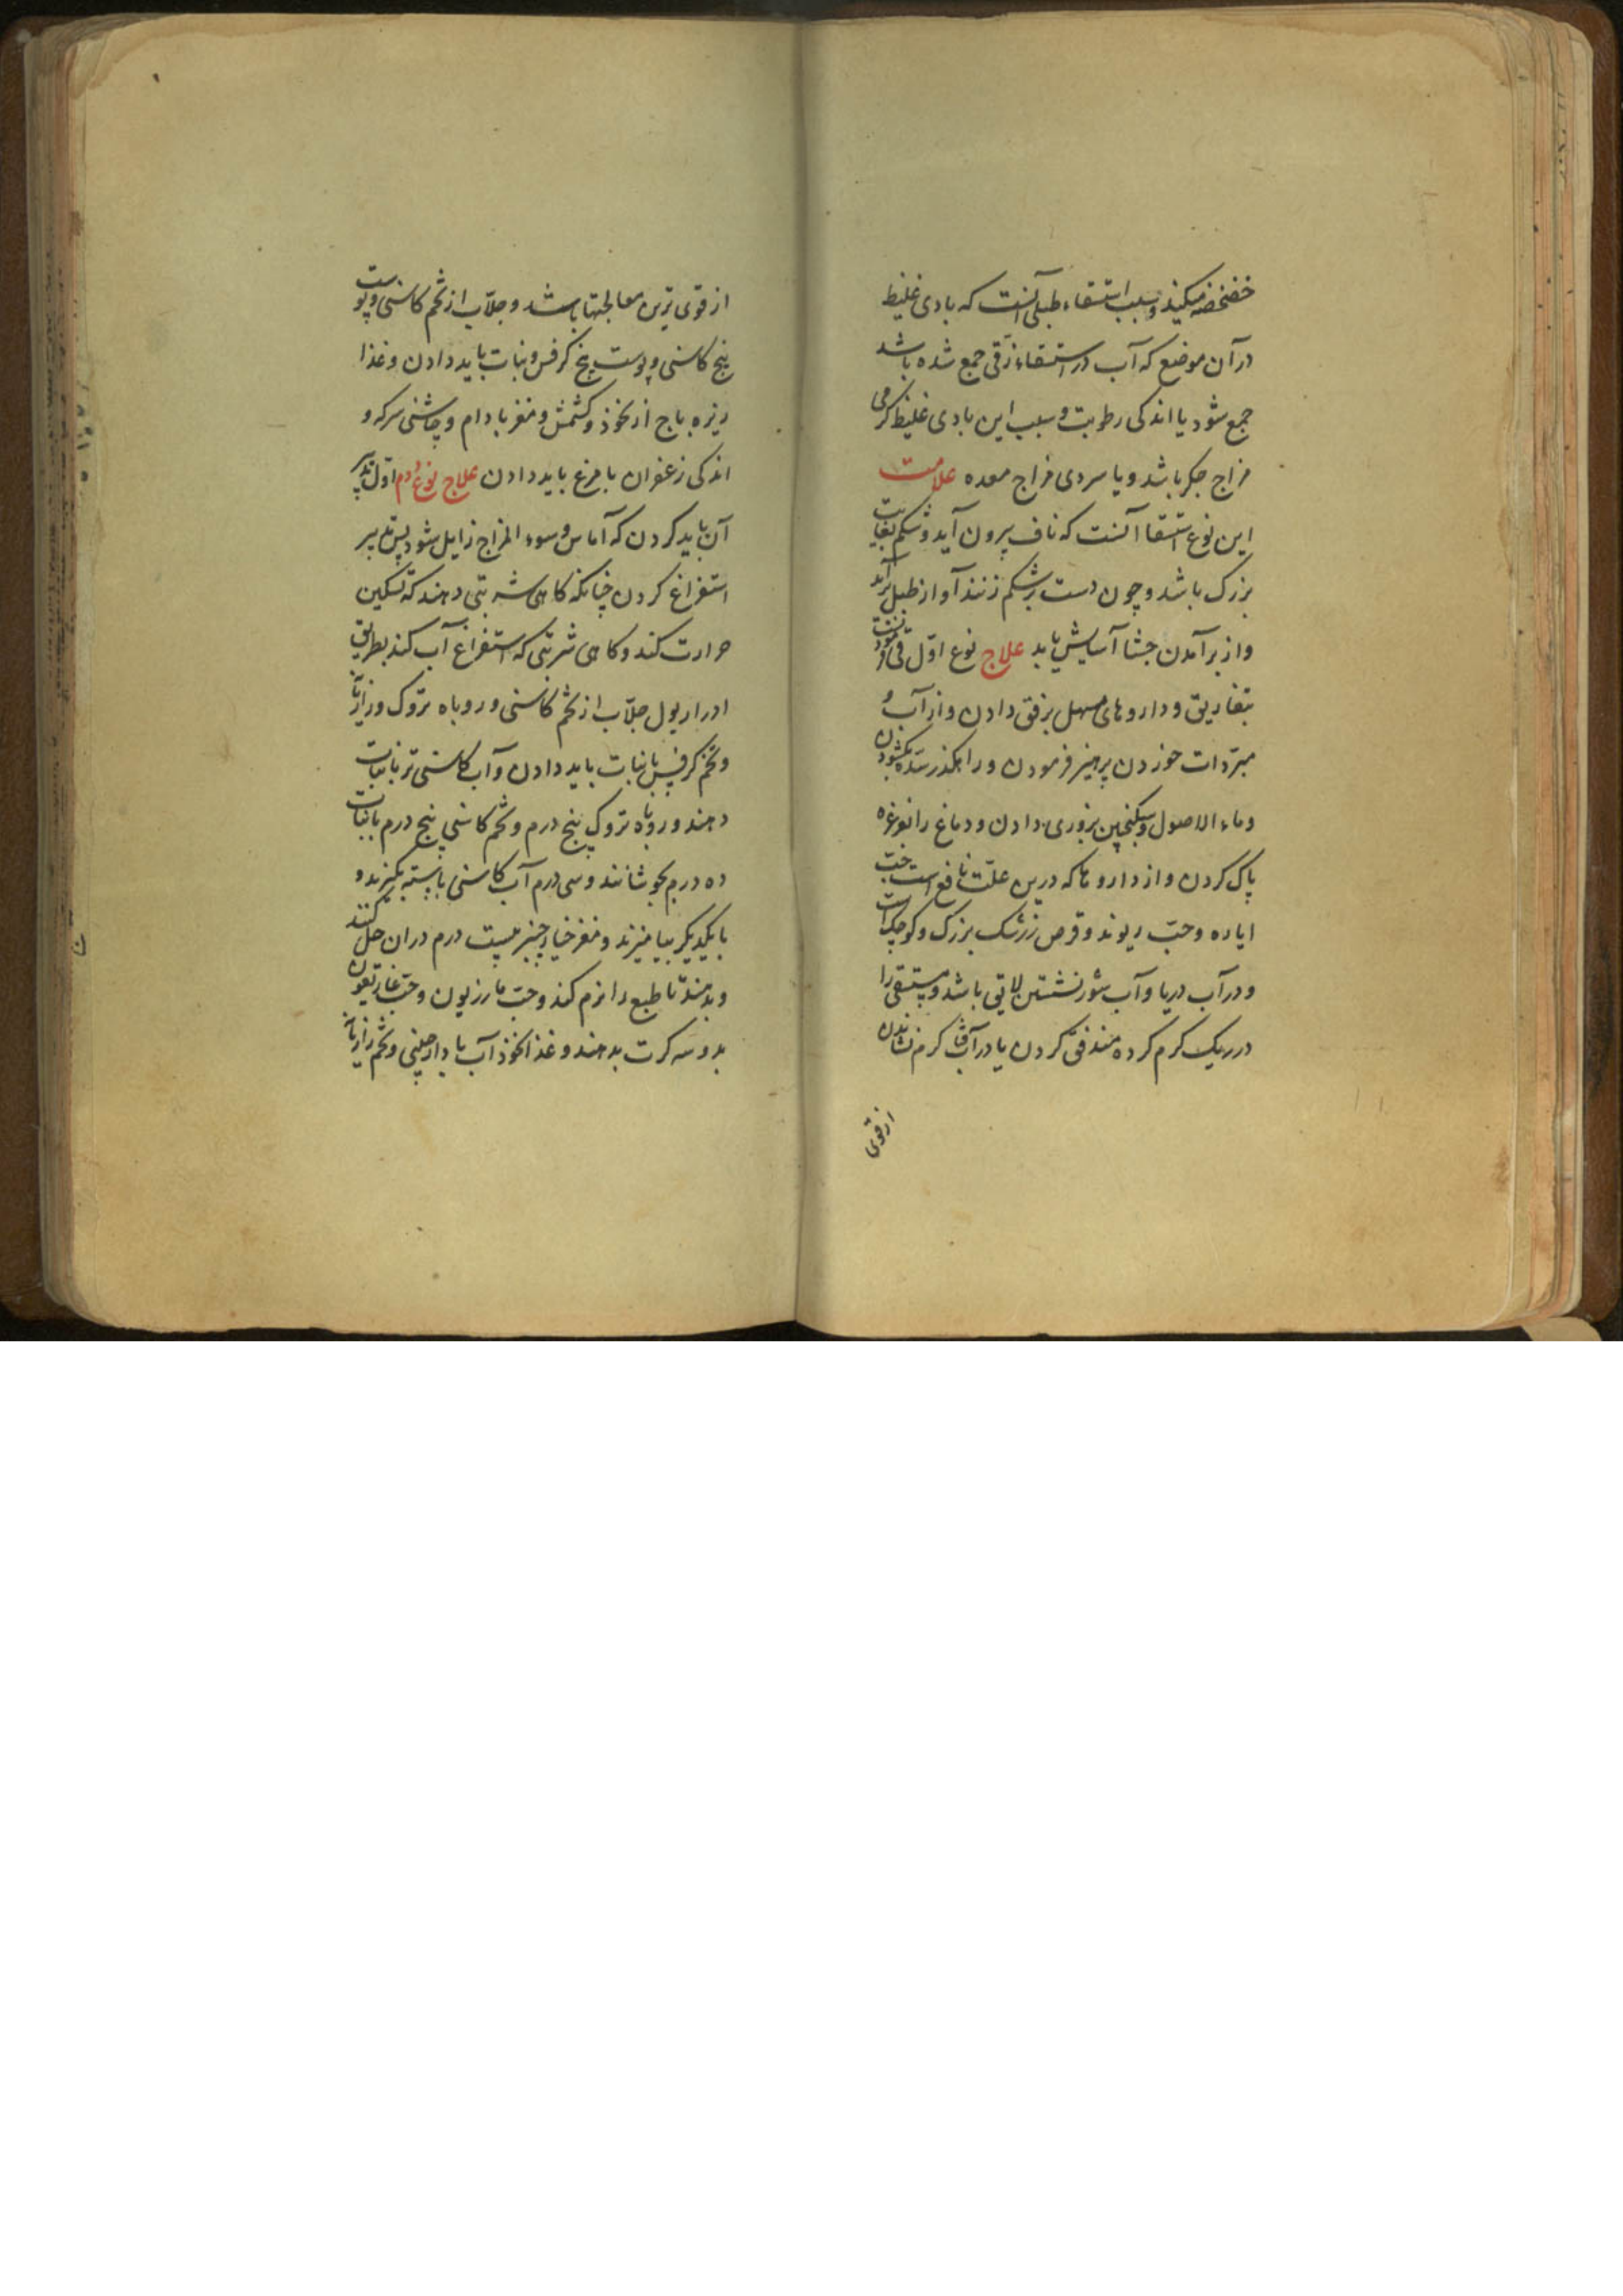 خضخضه میکند و سبب استسقاء طبلی آنست که بادی غلیظ
در آن موضع که آب در استسقاء زقی جمع شده باشد
جمع شود یا اندکی رطوبت و سبب این بادی غلیظ کرمی
مزاج جکر باشد و یا سردی مزاج معده علامت
این نوع استسقا آنست که ناف بیرون آید و شکم بغایت
بزرک باشد و چون دست بر شکم زنند آواز طبل برآید
و از برآمدن جشا آسایش یابد علاج نوع اول قی
بتفاریق و داروهای مسهل برفق دادن و از آب و
مبردات خوردن پرهیز فرمودن و راهکذر سده بکشودن
و ماء الاصول و سکنجبین بزوری دادن و دماغ را بغرغره
پاک کردن و از داروها که درین علت نافع است حب
ایاره و حب ریوند و قرص زرشک بزرک و کوچک است
و در آب دریا و آب شور نشستن لایق باشد و مستسقی را
در ریک کرم کرده مندفن کردن یا در آفتاب کرم نشاندن
از قوی
از قوی ترین معالجتها باشد و جلاب از تخم کاسنی و پوست
بیخ کاسنی و پوست بیخ کرفس و نبات باید دادن و غذا
زیره باج از نخود و کشمش و مغز بادام و چاشنی سرکه و
اندکی زعفران با مرغ باید دادن علاج نوع دوم اول تدبیر
آن باید کردن که آماس و سوء المزاج زایل شود پس تدبیر
استفراغ کردن چنانکه کاهی شربتی دهند که تسکین
حرارت کند و کاهی شربتی که استفراغ آب کند بطریق
ادرار بول جلاب از تخم کاسنی و روباه تروک و رازیانه
و تخم کرفس با نبات باید دادن و آب کاسنی تر با نبات
دهند و روباه تروک پنج درم و تخم کاسنی پنج درم با نبات
ده درم بجوشانند و سی درم آب کاسنی نابسته بکیرند و
با یکدیکر بیامیزند و مغز خیارچنبر بیست درم دران حل کنند
و بدهند تا طبع را نرم کند و حب مازریون و حب غاریقون
بدو سه کرت بدهند و غذا نخود آب با دارچینی و تخم رازیانه